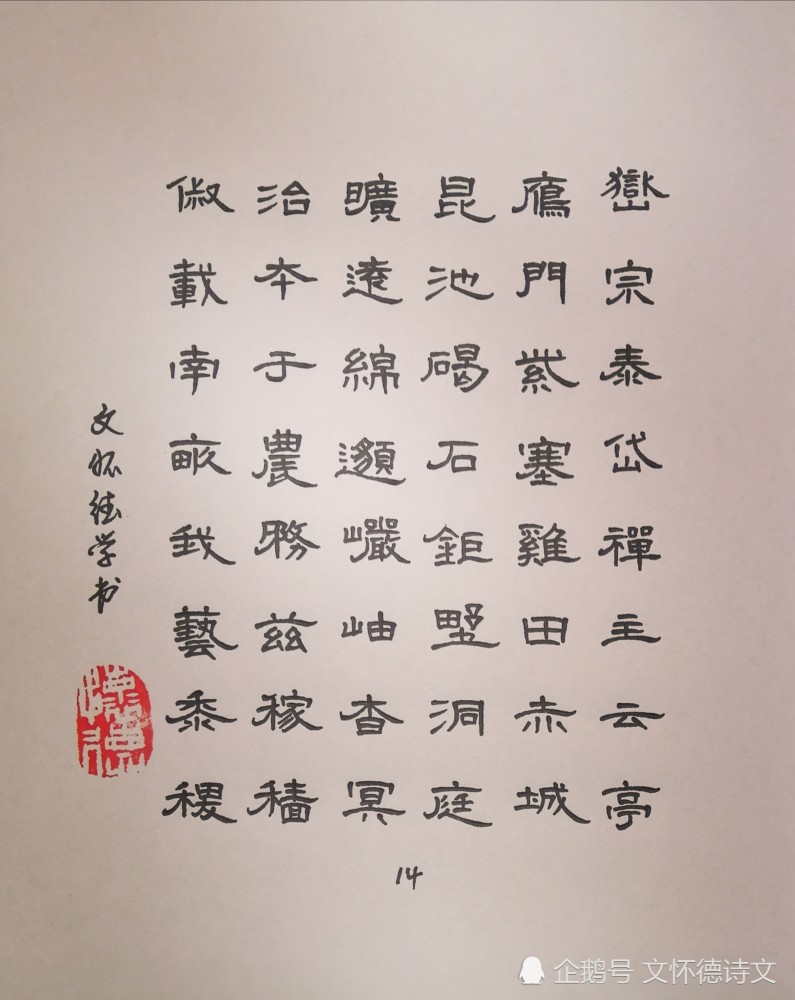 嶽宗泰岱禪主云亭
鴈門紫塞雞田赤城
昆池碣石鉅墅洞庭
曠遠綿邈巖岫杳冥
治本于農務茲稼穡
俶載南畝我藝黍稷
文怀德学书
14
企鹅号 文怀德诗文